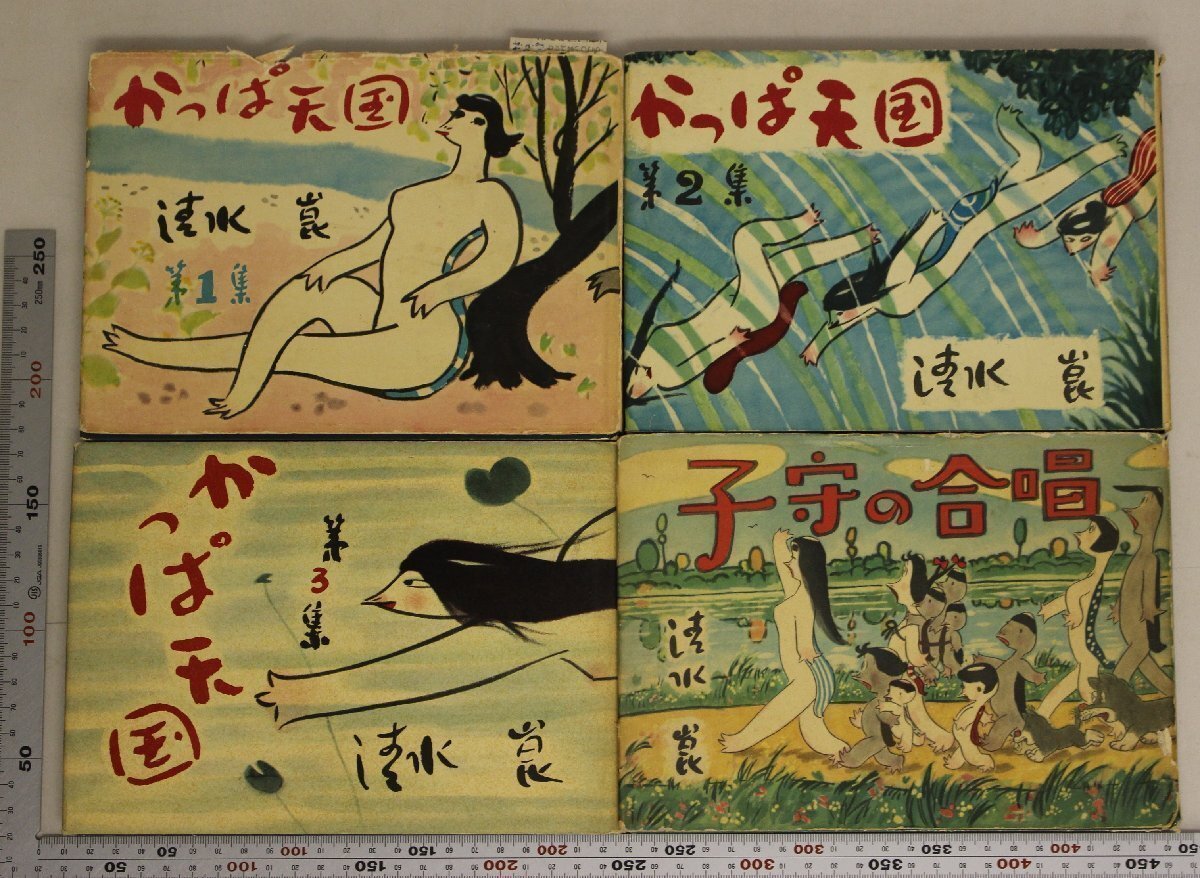 かっぱ天国
清水 崑
第1集
かっぱ天国
第2集
清水 崑
かっぱ天国
第3集
清水 崑
子守の合唱
清水 崑
250
250mm
200
150
100
50
50
100
150
200
250
300
350
400
450